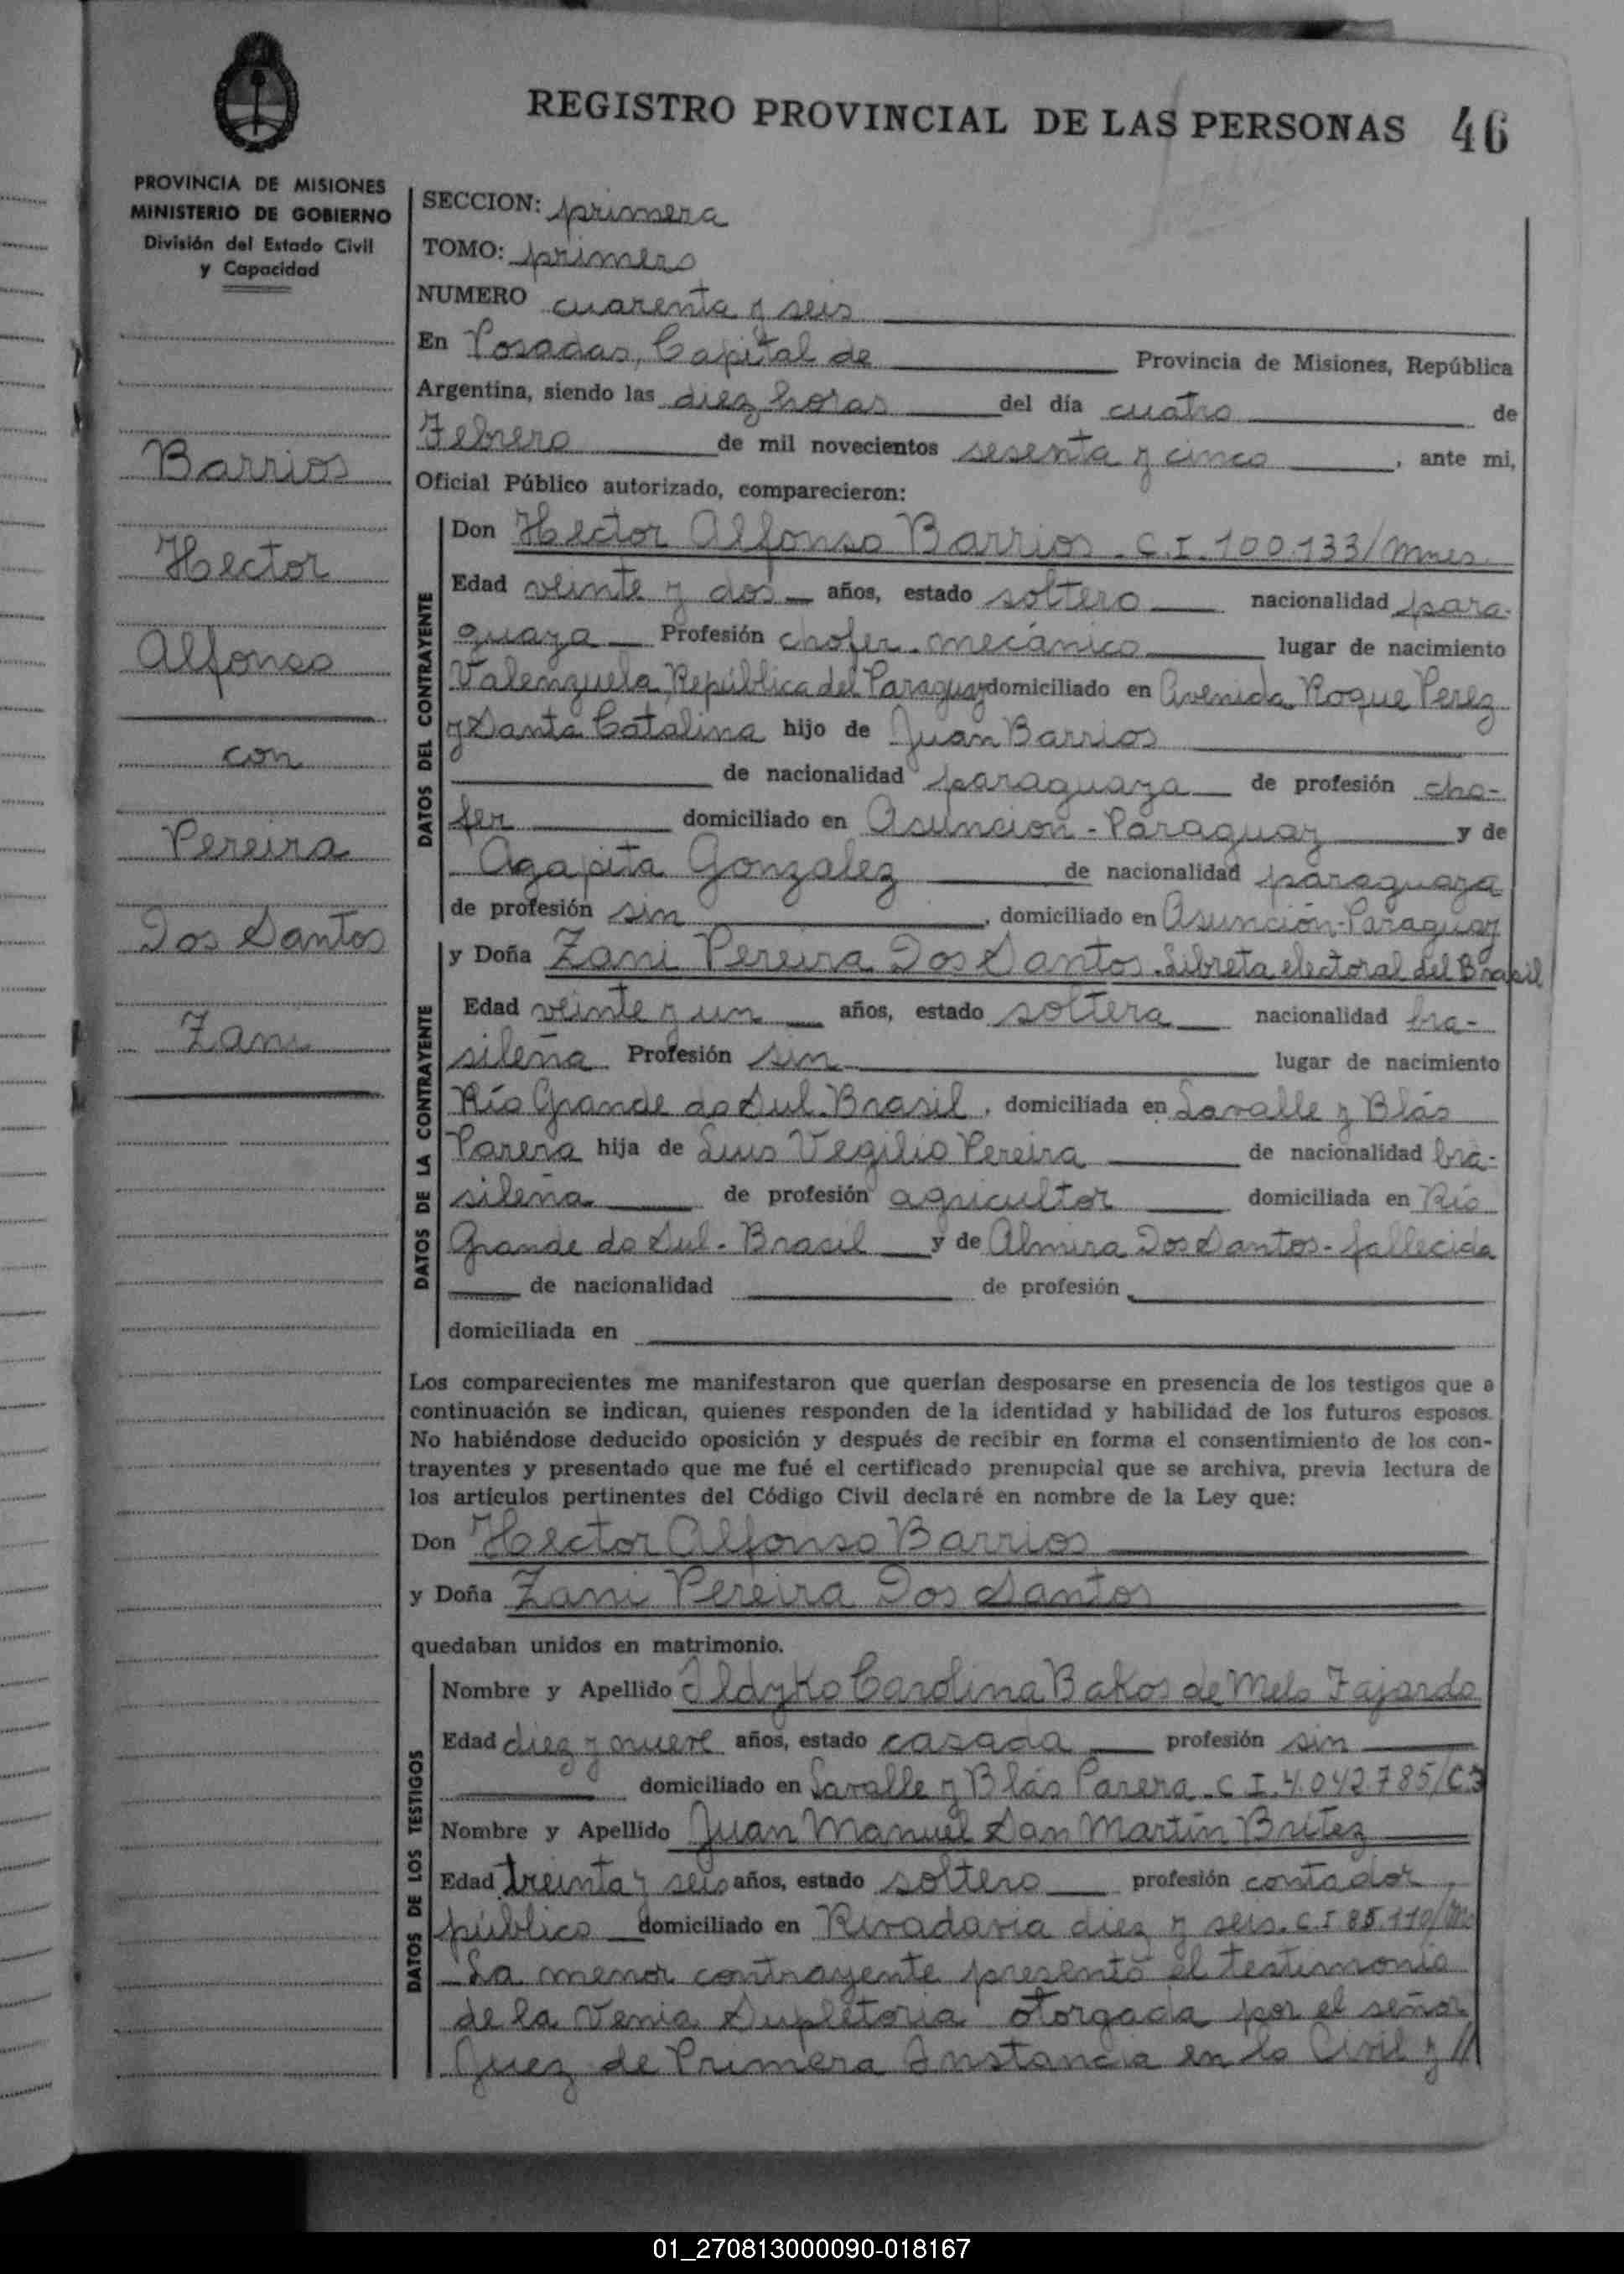 REGISTRO PROVINCIAL DE LAS PERSONAS 46
PROVINCIA DE MISIONES
MINISTERIO DE GOBIERNO
División del Estado Civil
y Capacidad
Barrios
Hector
Alfonso
con
Pereira
Dos Santos
Zani
SECCION: primera
TOMO: primero
NUMERO cuarenta y seis
En Posadas, Capital de Provincia de Misiones, República
Argentina, siendo las diez horas del día cuatro de
Febrero de mil novecientos sesenta y cinco, ante mi,
Oficial Público autorizado, comparecieron:
DATOS DEL CONTRAYENTE
Don Hector Alfonso Barrios. C.I. 100.133/Mnes
Edad veinte y dos años, estado soltero nacionalidad para-
guaya Profesión chofer-mecánico lugar de nacimiento
Valenzuela, República del Paraguay domiciliado en Avenida Roque Perez
y Santa Catalina hijo de Juan Barrios
de nacionalidad paraguaya de profesión cho-
fer domiciliado en Asunción - Paraguay y de
Agapita Gonzalez de nacionalidad paraguaya
de profesión sin, domiciliado en Asunción-Paraguay
DATOS DE LA CONTRAYENTE
y Doña Zani Pereira Dos Santos. Libreta electoral del Brasil
Edad veinte y un años, estado soltera nacionalidad bra-
sileña Profesión sin lugar de nacimiento
Río Grande do Sul. Brasil, domiciliada en Lavalle y Blás
Parera hija de Luis Vegilio Pereira de nacionalidad bra-
sileña de profesión agricultor domiciliada en Río
Grande do Sul - Brasil y de Almira Dos Santos - fallecida
de nacionalidad de profesión
domiciliada en
Los comparecientes me manifestaron que querían desposarse en presencia de los testigos que a
continuación se indican, quienes responden de la identidad y habilidad de los futuros esposos.
No habiéndose deducido oposición y después de recibir en forma el consentimiento de los con-
trayentes y presentado que me fué el certificado prenupcial que se archiva, previa lectura de
los artículos pertinentes del Código Civil declaré en nombre de la Ley que:
Don Hector Alfonso Barrios
y Doña Zani Pereira Dos Santos
quedaban unidos en matrimonio.
DATOS DE LOS TESTIGOS
Nombre y Apellido Ildyko Carolina Bakos de Melo Fajardo
Edad diez y nueve años, estado casada profesión sin
domiciliado en Lavalle y Blás Parera. C I. 4.042.785/C.F
Nombre y Apellido Juan Manuel San Martín Britez
Edad treinta y seis años, estado soltero profesión contador
público domiciliado en Rivadavia diez y seis. C.I 85.110/Mn
La menor contrayente presentó el testimonio
de la Venia Supletoria otorgada por el señor
Juez de Primera Instancia en lo Civil y //
01_270813000090-018167